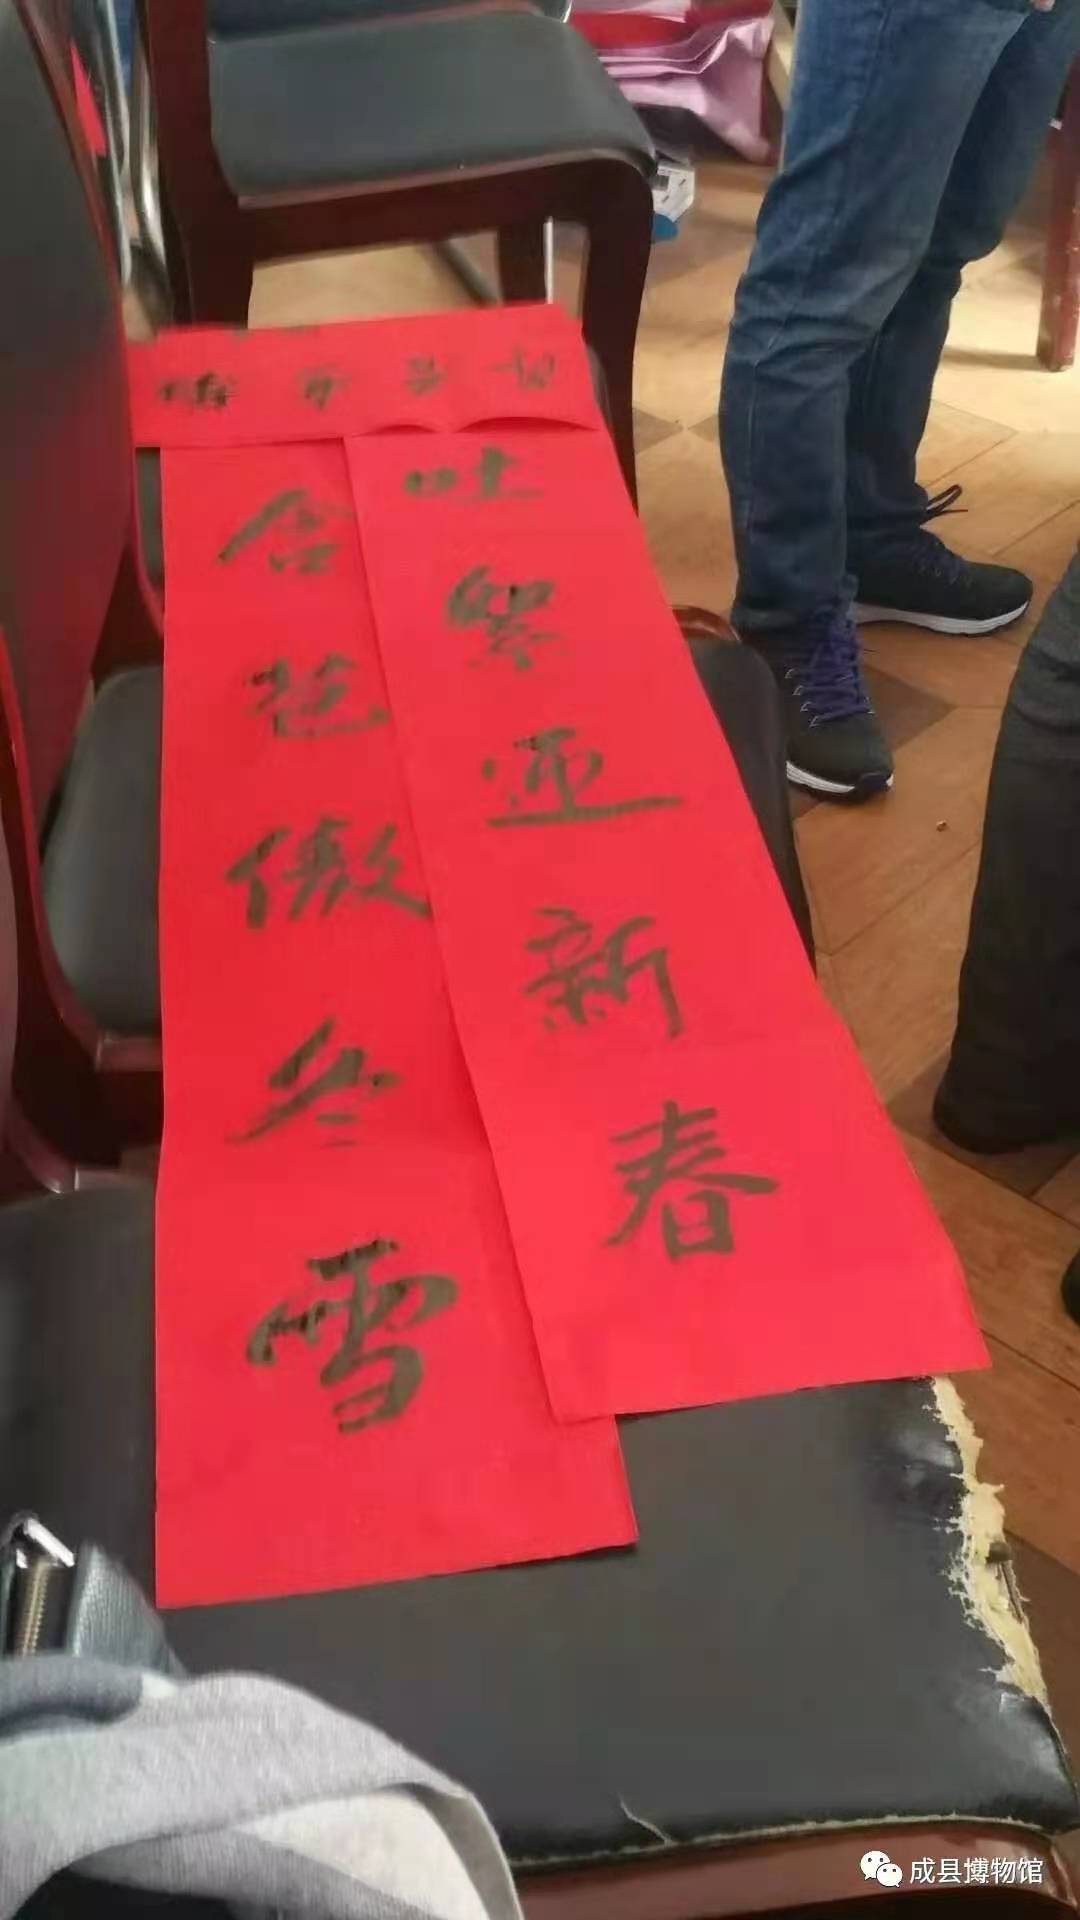 含苞傲冬雪
吐絮迎新春
成县博物馆